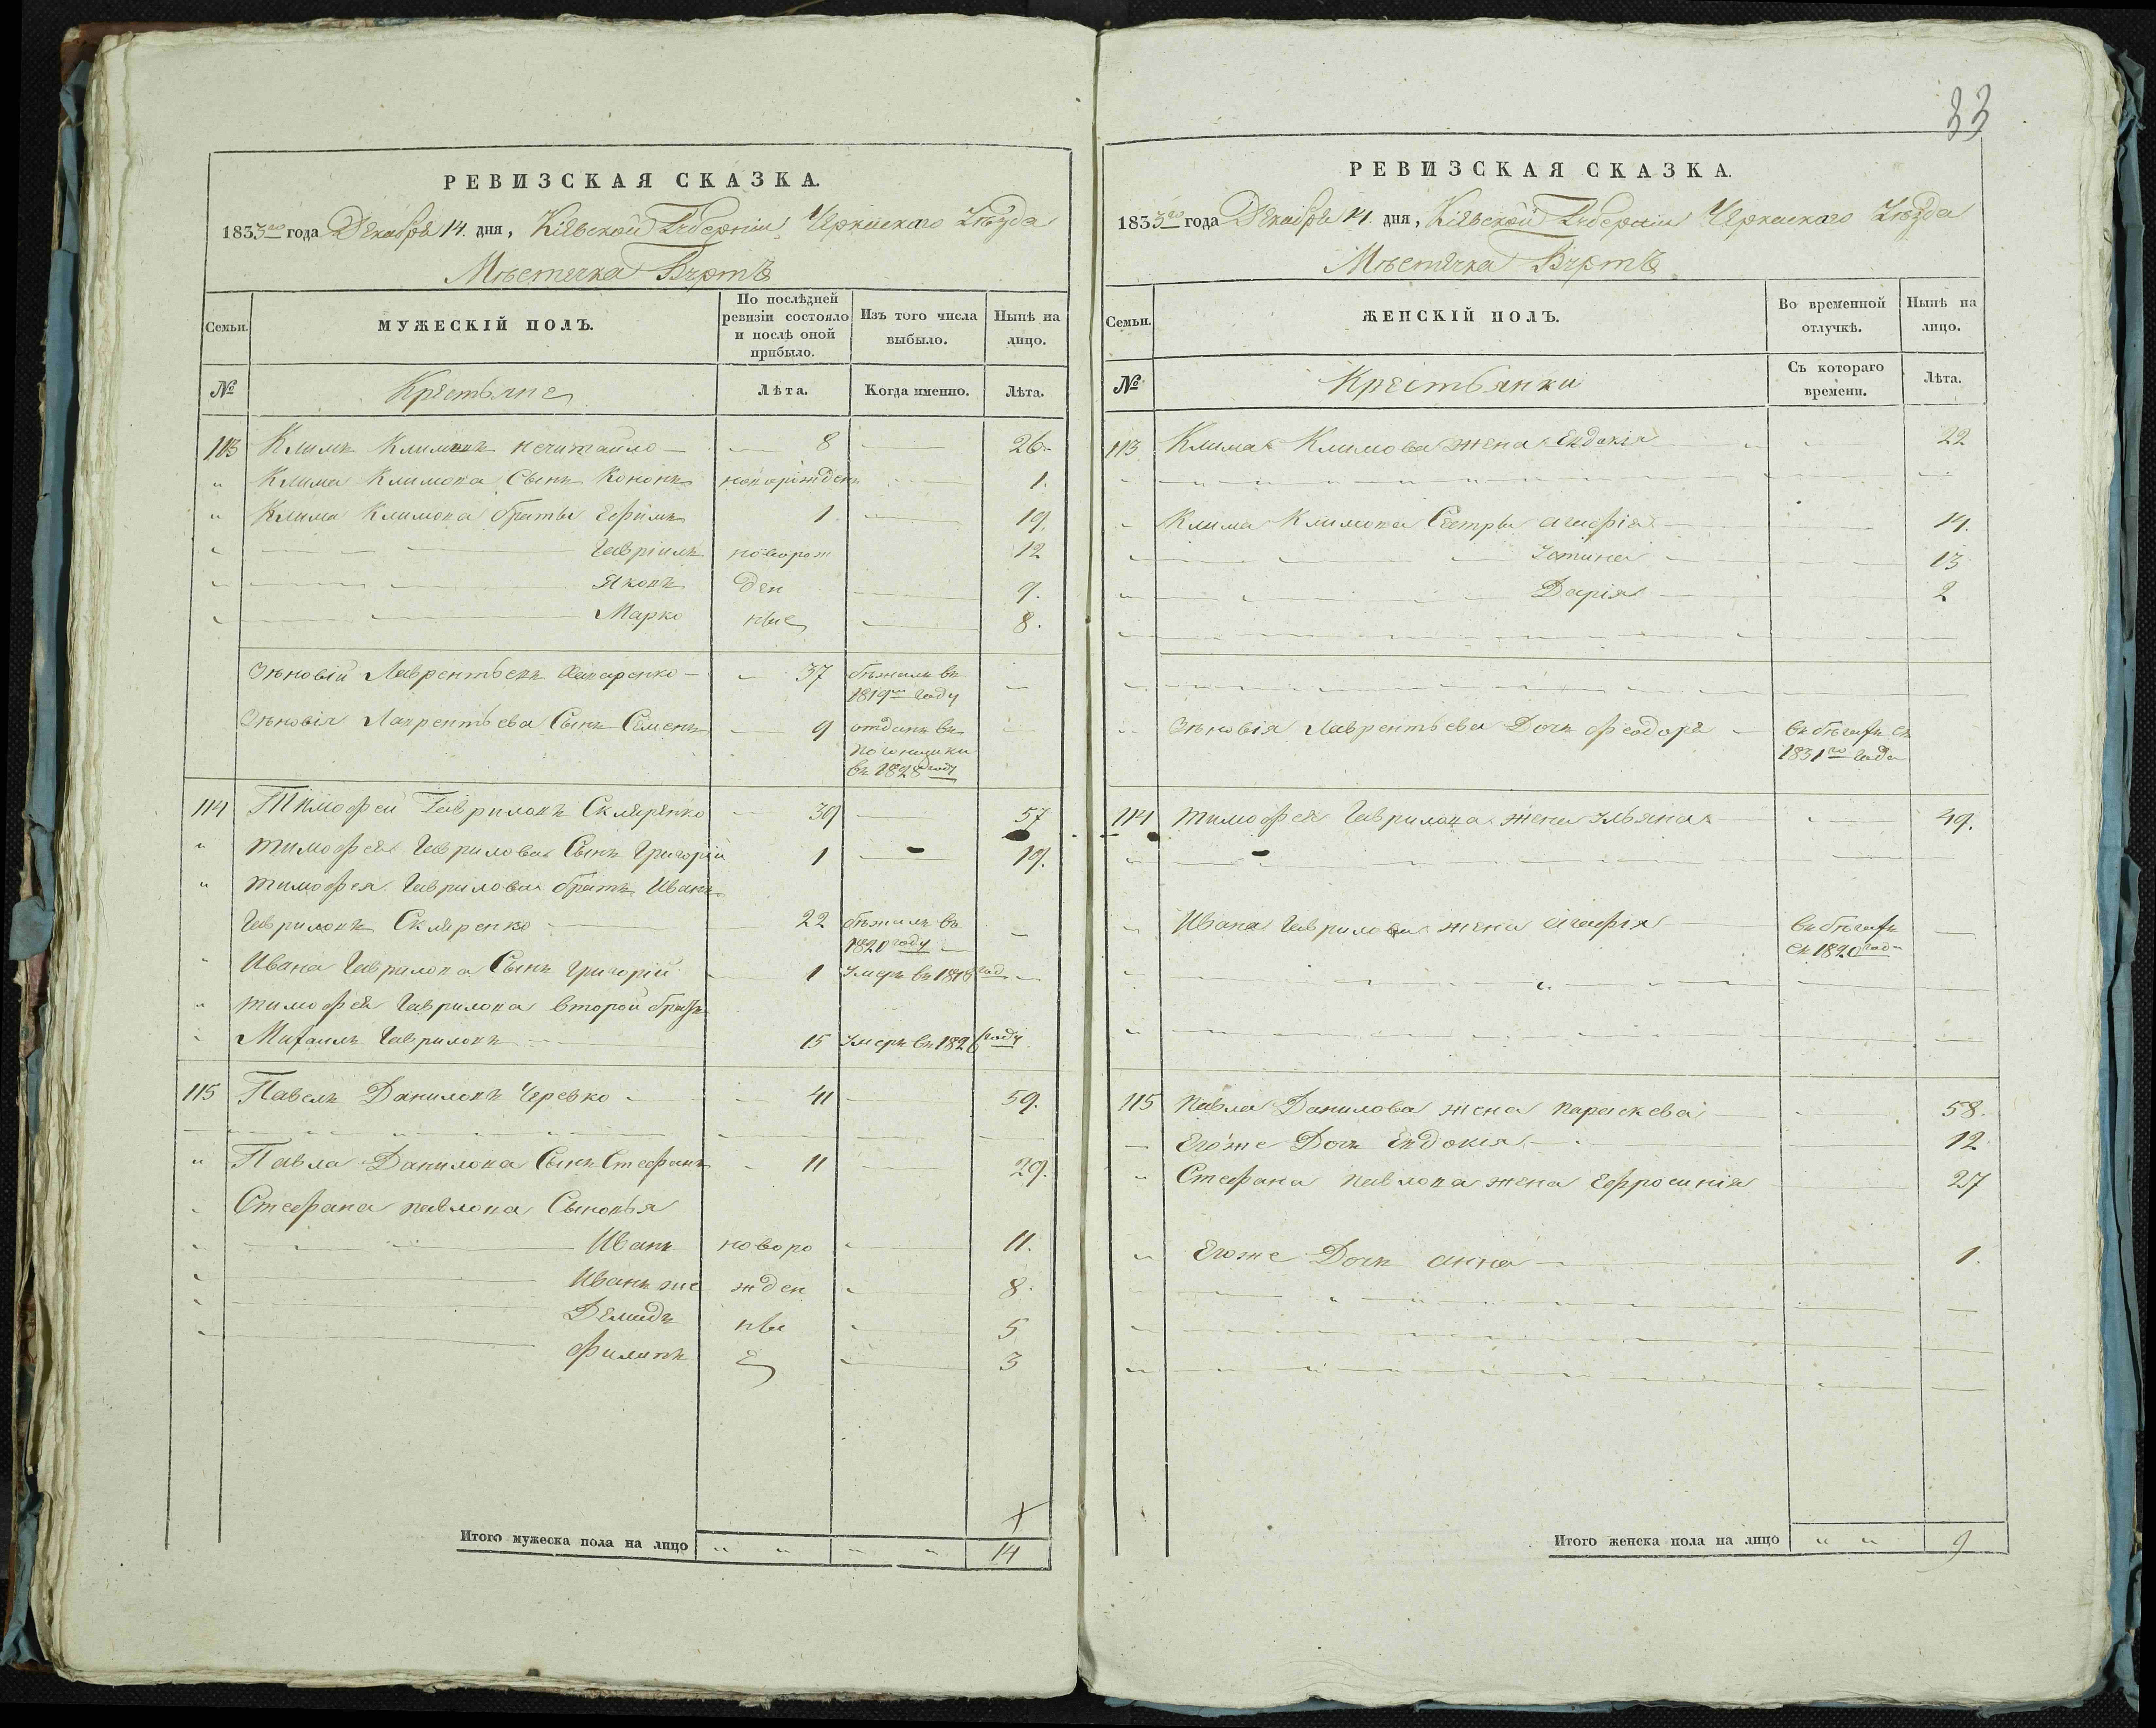 33
РЕВИЗСКАЯ СКАЗКА.
1833го года Декабря 14. дня, Кіевской Губерніи Черкаскаго Уѣзда
Мѣстечка
Семьи.
МУЖЕСКІЙ ПОЛЪ.
По послѣдней ревизіи состояло и послѣ оной прибыло.
Изъ того числа выбыло.
Нынѣ на лицо.
№
Крестьяне
Лѣта.
Когда именно.
Лѣта.
113 Климъ Климовъ Нечитайло 8 26.
" Клима Климова Сынъ Кононъ новорожденъ 1.
" Клима Климова братья Ефимъ 1 19.
Гавріилъ новорож 12
Яковъ ден 9.
Марко ные 8.
Зѣновій Лаврентьевъ 37 бѣжалъ въ
1819м году
Зѣновія Лаврентьева Сынъ Семенъ 9 отданъ въ
въ 1828 году
114 Тимофей Гавриловъ Скляренко 39 57
" Тимофея Гаврилова Сынъ Григорій 1 19.
" Тимофея Гаврилова братъ Иванъ
Гавриловъ Скляренко 22 бѣжалъ въ
1820 году
" Ивана Гаврилова Сынъ Григорій 1 Умеръ въ 1818 год
" Тимофея Гаврилова второй братъ
Михаилъ Гавриловъ 15 Умеръ въ 1826 году
115 Павелъ Даниловъ Черевко 41 59.
" Павла Данилова Сынъ Стефанъ 11 29.
Стефана Павлова Сыновья
Иванъ новоро 11.
Иванъ же жден 8.
Демидъ ны 5
Филипъ е 3
Итого мужеска пола на лицо " " " " 14
РЕВИЗСКАЯ СКАЗКА.
1833го года Декабря 14. дня, Кіевской Губерніи Черкаскаго Уѣзда
Мѣстечка
Семьи.
ЖЕНСКІЙ ПОЛЪ.
Во временной отлучкѣ.
Нынѣ на лицо.
№
Крестьянки
Съ котораго времени.
Лѣта.
113 Клима Климова жена Евдокія 22
Клима Климова Сестры Агафія 14.
Устина 13
Дарія 2
Зѣновія Лаврентьева Дочь Феодора въ бѣгахъ съ
1831го года
114 Тимофея Гаврилова жена Ульяна 49.
Ивана Гаврилова жена Агафія въ бѣгахъ
съ 1820 года
115 Павла Данилова жена Параскева 58.
Егоже Дочь Евдокія 12
" Стефана Павлова жена Ефросинія 27
" Егоже Дочь Анна 1.
Итого женска пола на лицо " " 9